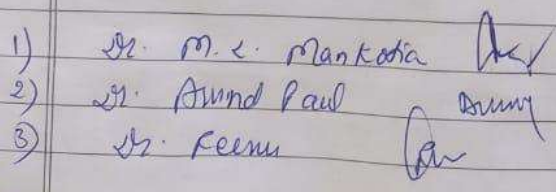 1) Dr. M. L. Mankotia
2) Dr. Arvind Paul
3) Dr. Reenu